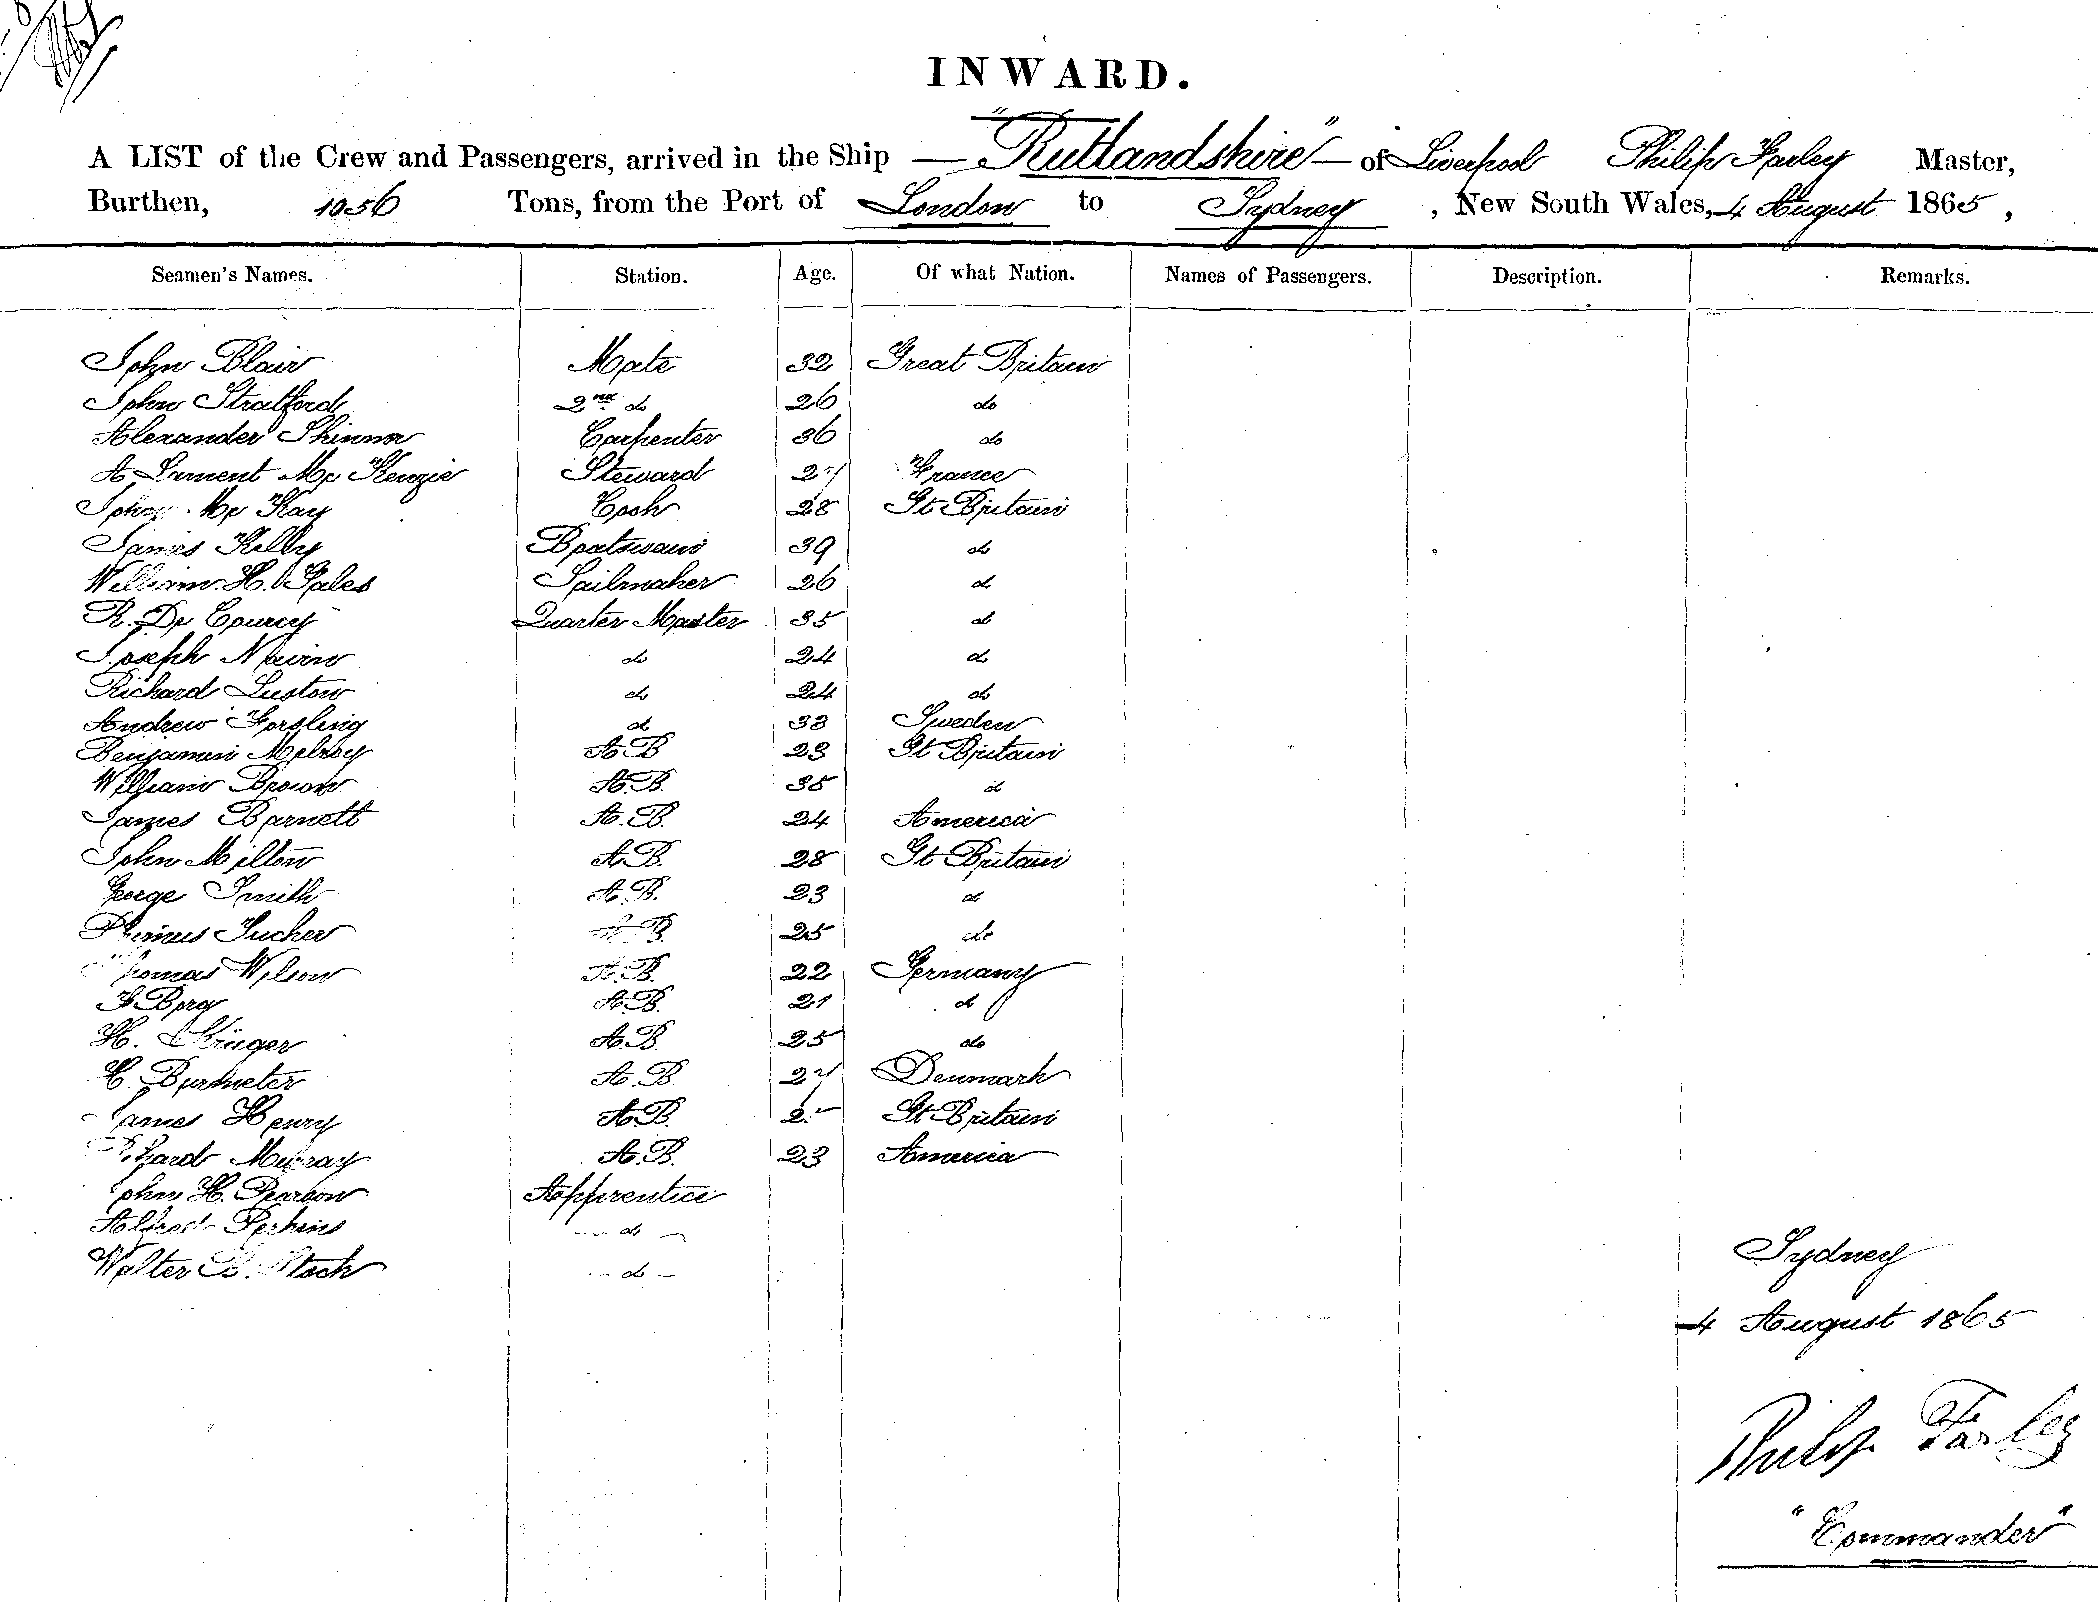 INWARD.
A LIST of the Crew and Passengers, arrived in the Ship — "Rutlandshire" — of Liverpool Philip Farley Master,
Burthen, 1056 Tons, from the Port of London to Sydney, New South Wales, 4 August 1865,
Seamen's Names. Station. Age. Of what Nation. Names of Passengers. Description. Remarks.
John Blair Mate 32 Great Britain
John Stratford 2nd do 26 do
Alexander Skinner Carpenter 36 do
A Lament Mc Kenzie Steward 27 France
John Mc Kay Cook 28 Gt Britain
James Kelly Boatswain 39 do
William H. Gales Sailmaker 26 do
R. De Courcy Quarter Master 35 do
Joseph Nevin do 24 do
Richard Luston do 24 do
Andrew Forsling do 33 Sweden
Benjamin Melroy A.B 23 Gt Britain
William Brown A.B. 35 do
James Barnett A.B. 24 America
John Milton A.B. 28 Gt Britain
George Smith A.B. 23 do
Tucker A.B. 25 do
Thomas Wilson A.B. 22 Germany
F Berg A.B. 21 do
H. Krüger A.B 25 do
C. Burmeter A.B. 27 Denmark
James Henry A.B. Gt Britain
Richard Murray A.B. 23 America
John H. Pearson Apprentice
Alfred Perkins do
Walter Stock do
Sydney
4 August 1865
Philip Farley
"Commander"